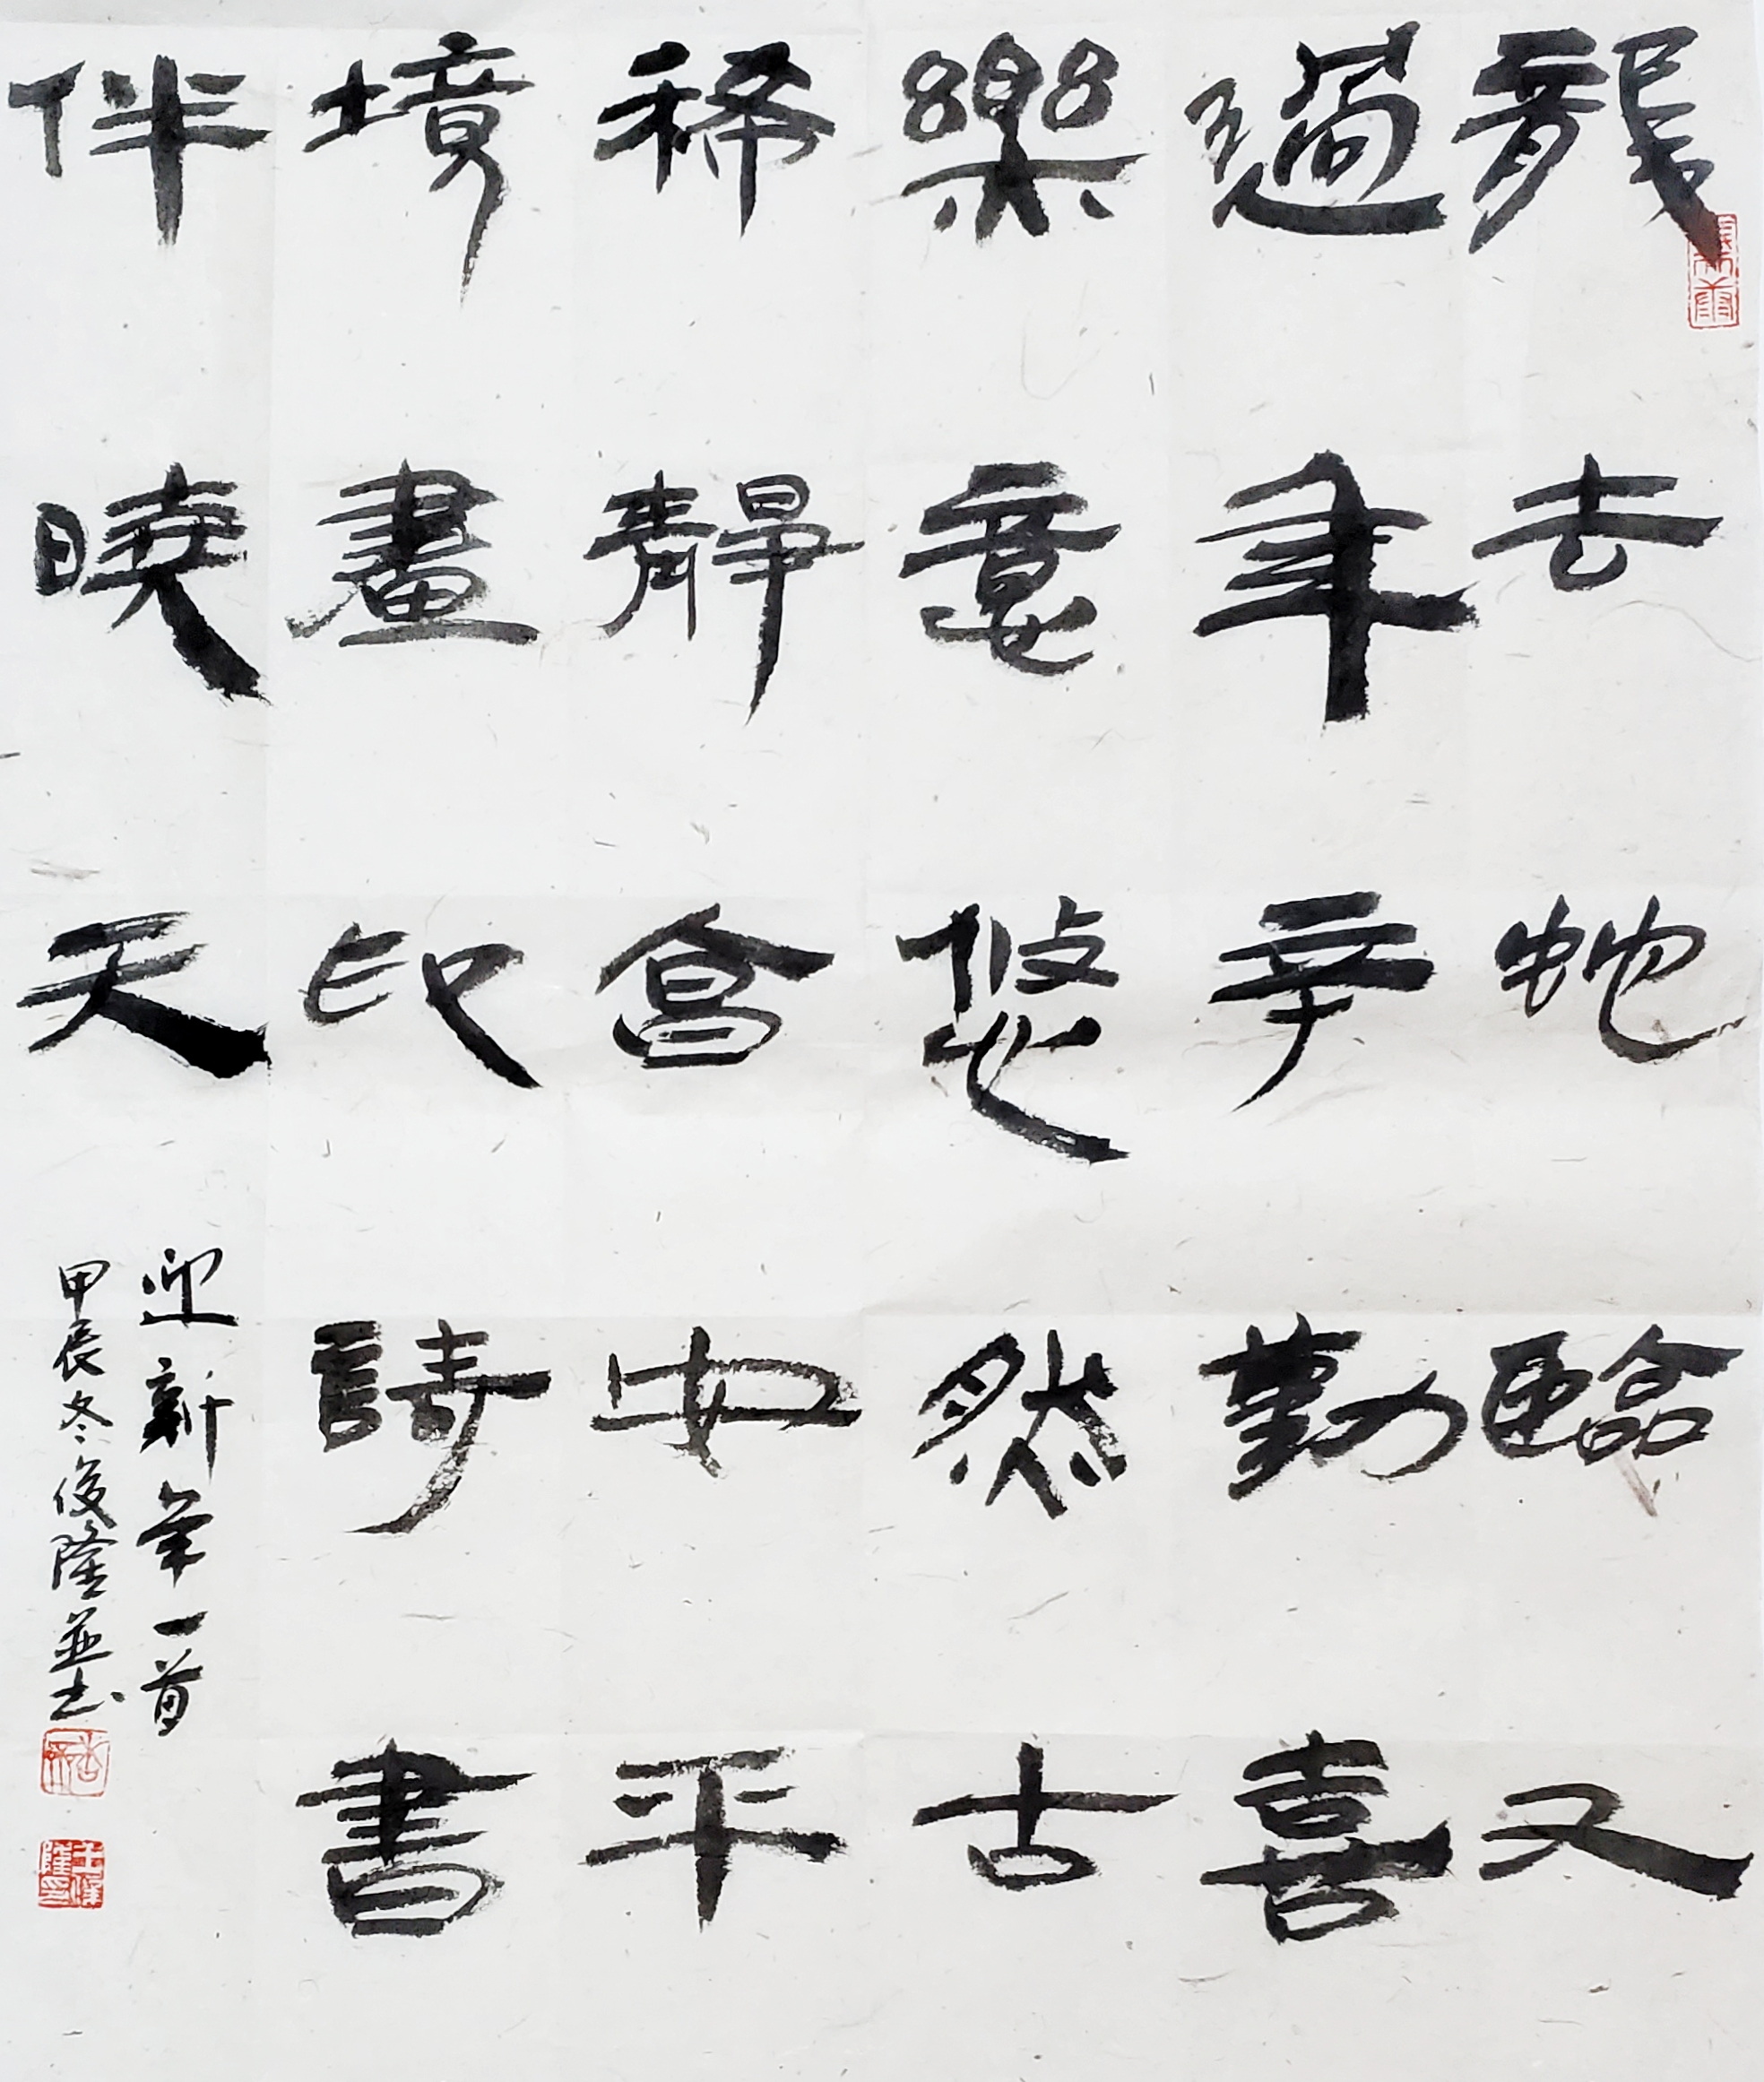 龍去蛇臨又
過年辛勤喜
樂意悠然古
稀靜享安平
境畫印詩書
伴曉天
迎新年一首
甲辰冬俊隆並书